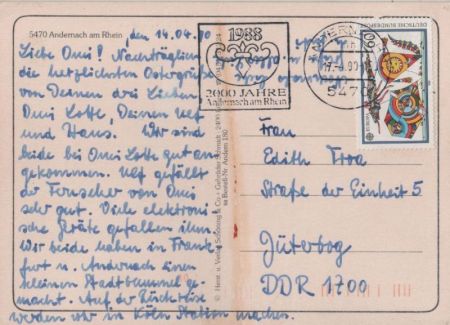 5470 Andernach am Rhein
, den 14.04.90
Liebe Omi! Nachträglich
die herzlichsten Ostergrüße
von Deinen drei Lieben
Omi Lotte, Deinen Ulf
und Hans. Wir sind
beide bei Omi Lotte gut an-
gekommen. Ulf gefällt
der Fernseher von Omi
sehr gut. Viele elektroni-
sche Geräte gefallen ihm.
Wir beide haben in Frank-
furt u. Andernach einen
kleinen Stadtbummel ge-
macht. Auf der Rückreise
werden wir in Köln Station machen.
1988
2000 JAHRE
Andernach am Rhein
547
DEUTSCHE BUNDESPOST
Frau
Edith
Straße der Einheit 5
Jüterbog
DDR 1700